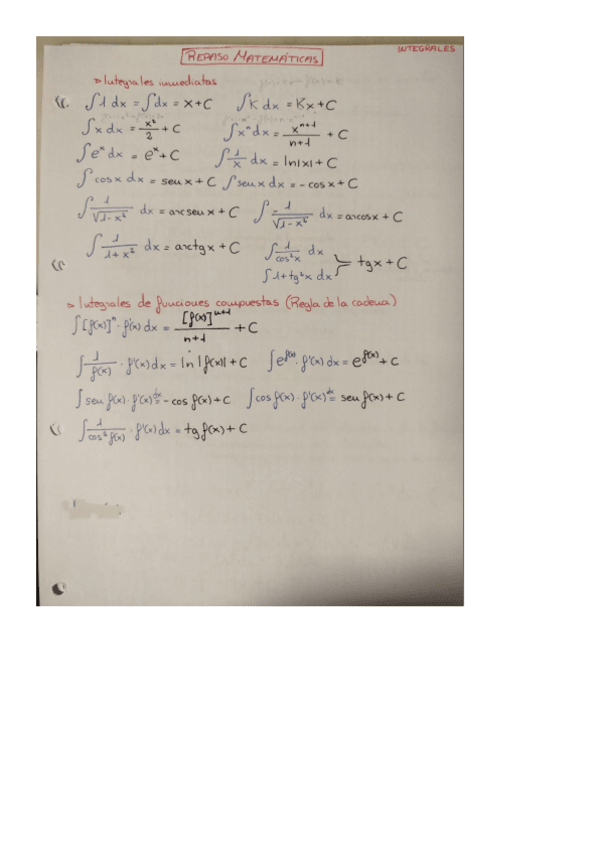 INTEGRALES
REPASO MATEMÁTICAS
➢ Integrales inmediatas
∫1 dx = ∫dx = x + C    ∫K dx = Kx + C
∫x dx = x²/2 + C    ∫xⁿ dx = xⁿ⁺¹/(n+1) + C
∫eˣ dx = eˣ + C    ∫1/x dx = ln|x| + C
∫cos x dx = sen x + C    ∫sen x dx = - cos x + C
∫1/√(1-x²) dx = arcsen x + C    ∫-1/√(1-x²) dx = arcosx + C
∫1/(1+x²) dx = arctg x + C    ∫1/cos²x dx
∫1+tg²x dx    > tgx + C
➢ Integrales de funciones compuestas (Regla de la cadena)
∫[f(x)]ⁿ · f'(x) dx = [f(x)]ⁿ⁺¹/(n+1) + C
∫1/f(x) · f'(x) dx = ln |f(x)| + C    ∫e^f(x) · f'(x) dx = e^f(x) + C
∫sen f(x) · f'(x) dx = - cos f(x) + C    ∫cos f(x) · f'(x) dx = sen f(x) + C
∫1/cos² f(x) · f'(x) dx = tg f(x) + C